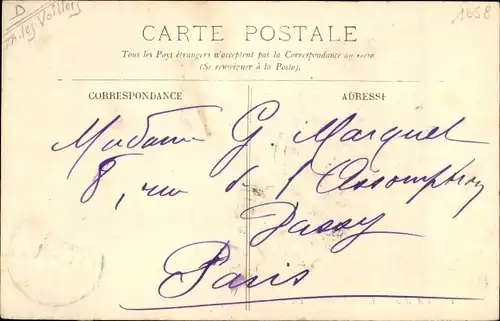 D
les Voilles
1658
CARTE POSTALE
Tous les Pays étrangers n'acceptent pas la Correspondance au recto
(Se renseigner à la Poste).
CORRESPONDANCE
ADRESSE
Madame G Marquet
8, rue de l'Assomption
Passy
Paris